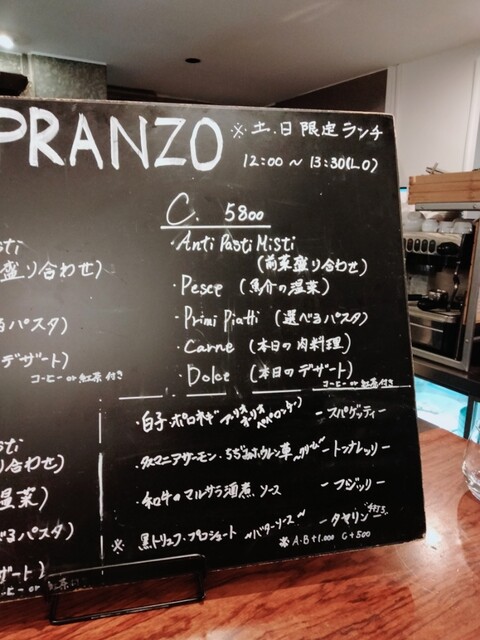 PRANZO ※土.日限定ランチ
12:00 ~ 13:30(L.O)
C. 5800
・Anti Pasti Misti
(前菜盛り合わせ)
・Pesce (魚介の温菜)
・Primi Piatti (選べるパスタ)
・Carne (本日の肉料理)
・Dolce (本日のデザート)
コーヒー or 紅茶付き
sti
盛り合わせ)
るパスタ)
デザート)
コーヒー or 紅茶付き
sti
り合わせ)
温菜)
べるパスタ)
ザート)
ーヒー or 紅茶付
・白子・ポロネギ アーリオオーリオペペロンチーノ ー スパゲッティー
・タスマニアサーモン・ちぢみホウレン草 ~クリーム~ ー トンナレッリー
・和牛のマルサラ酒煮ソース ー フジッリー
※ 黒トリュフ・プロシュート ~バターソース~ ー タヤリン "手打ち"
※ A.B+1.000 C+500